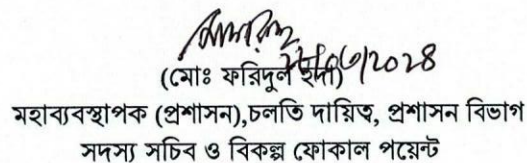 (মোঃ ফরিদুল হুদা)
মহাব্যবস্থাপক (প্রশাসন),চলতি দায়িত্ব, প্রশাসন বিভাগ
সদস্য সচিব ও বিকল্প ফোকাল পয়েন্ট